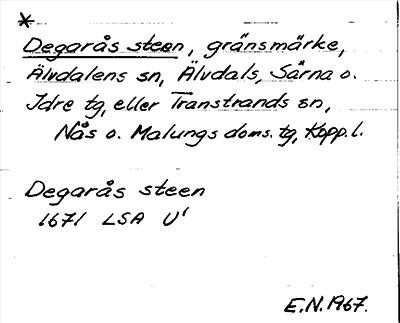 *
Degarås steen, gränsmärke,
Älvdalens sn, Älvdals, Särna o.
Idre tg, eller Transtrands sn,
Nås o. Malungs doms. tg, Kopp. l.
Degarås steen
1671 LSA U'
E.N. 1967.